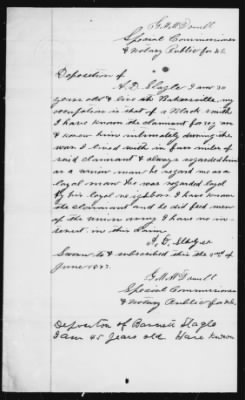 G. M. McDowell
Special Commissioner
& Notary Public for N.C.
Deposition of
A. D. Slagle I am 50
years old & live at Bakersville, my
occupation is that of Black smith
I have known the claimant for 25 years
& knew him intimately during the
war. I lived with in four miles of
said claimant & always regarded him
as a union man he regard me as a
loyal man He was regarded loyal
by his loyal neighbors I have known
the claimant and he did feed men
of the union army I have no in-
terest in this claim
A. D. Slagle
Sworn to & subscribed this the
June 1877.
G. M. McDowell
Special Commissioner
& Notary Public for N.C.
Deposition of Barnett Slagle
I am 45 years old Have known